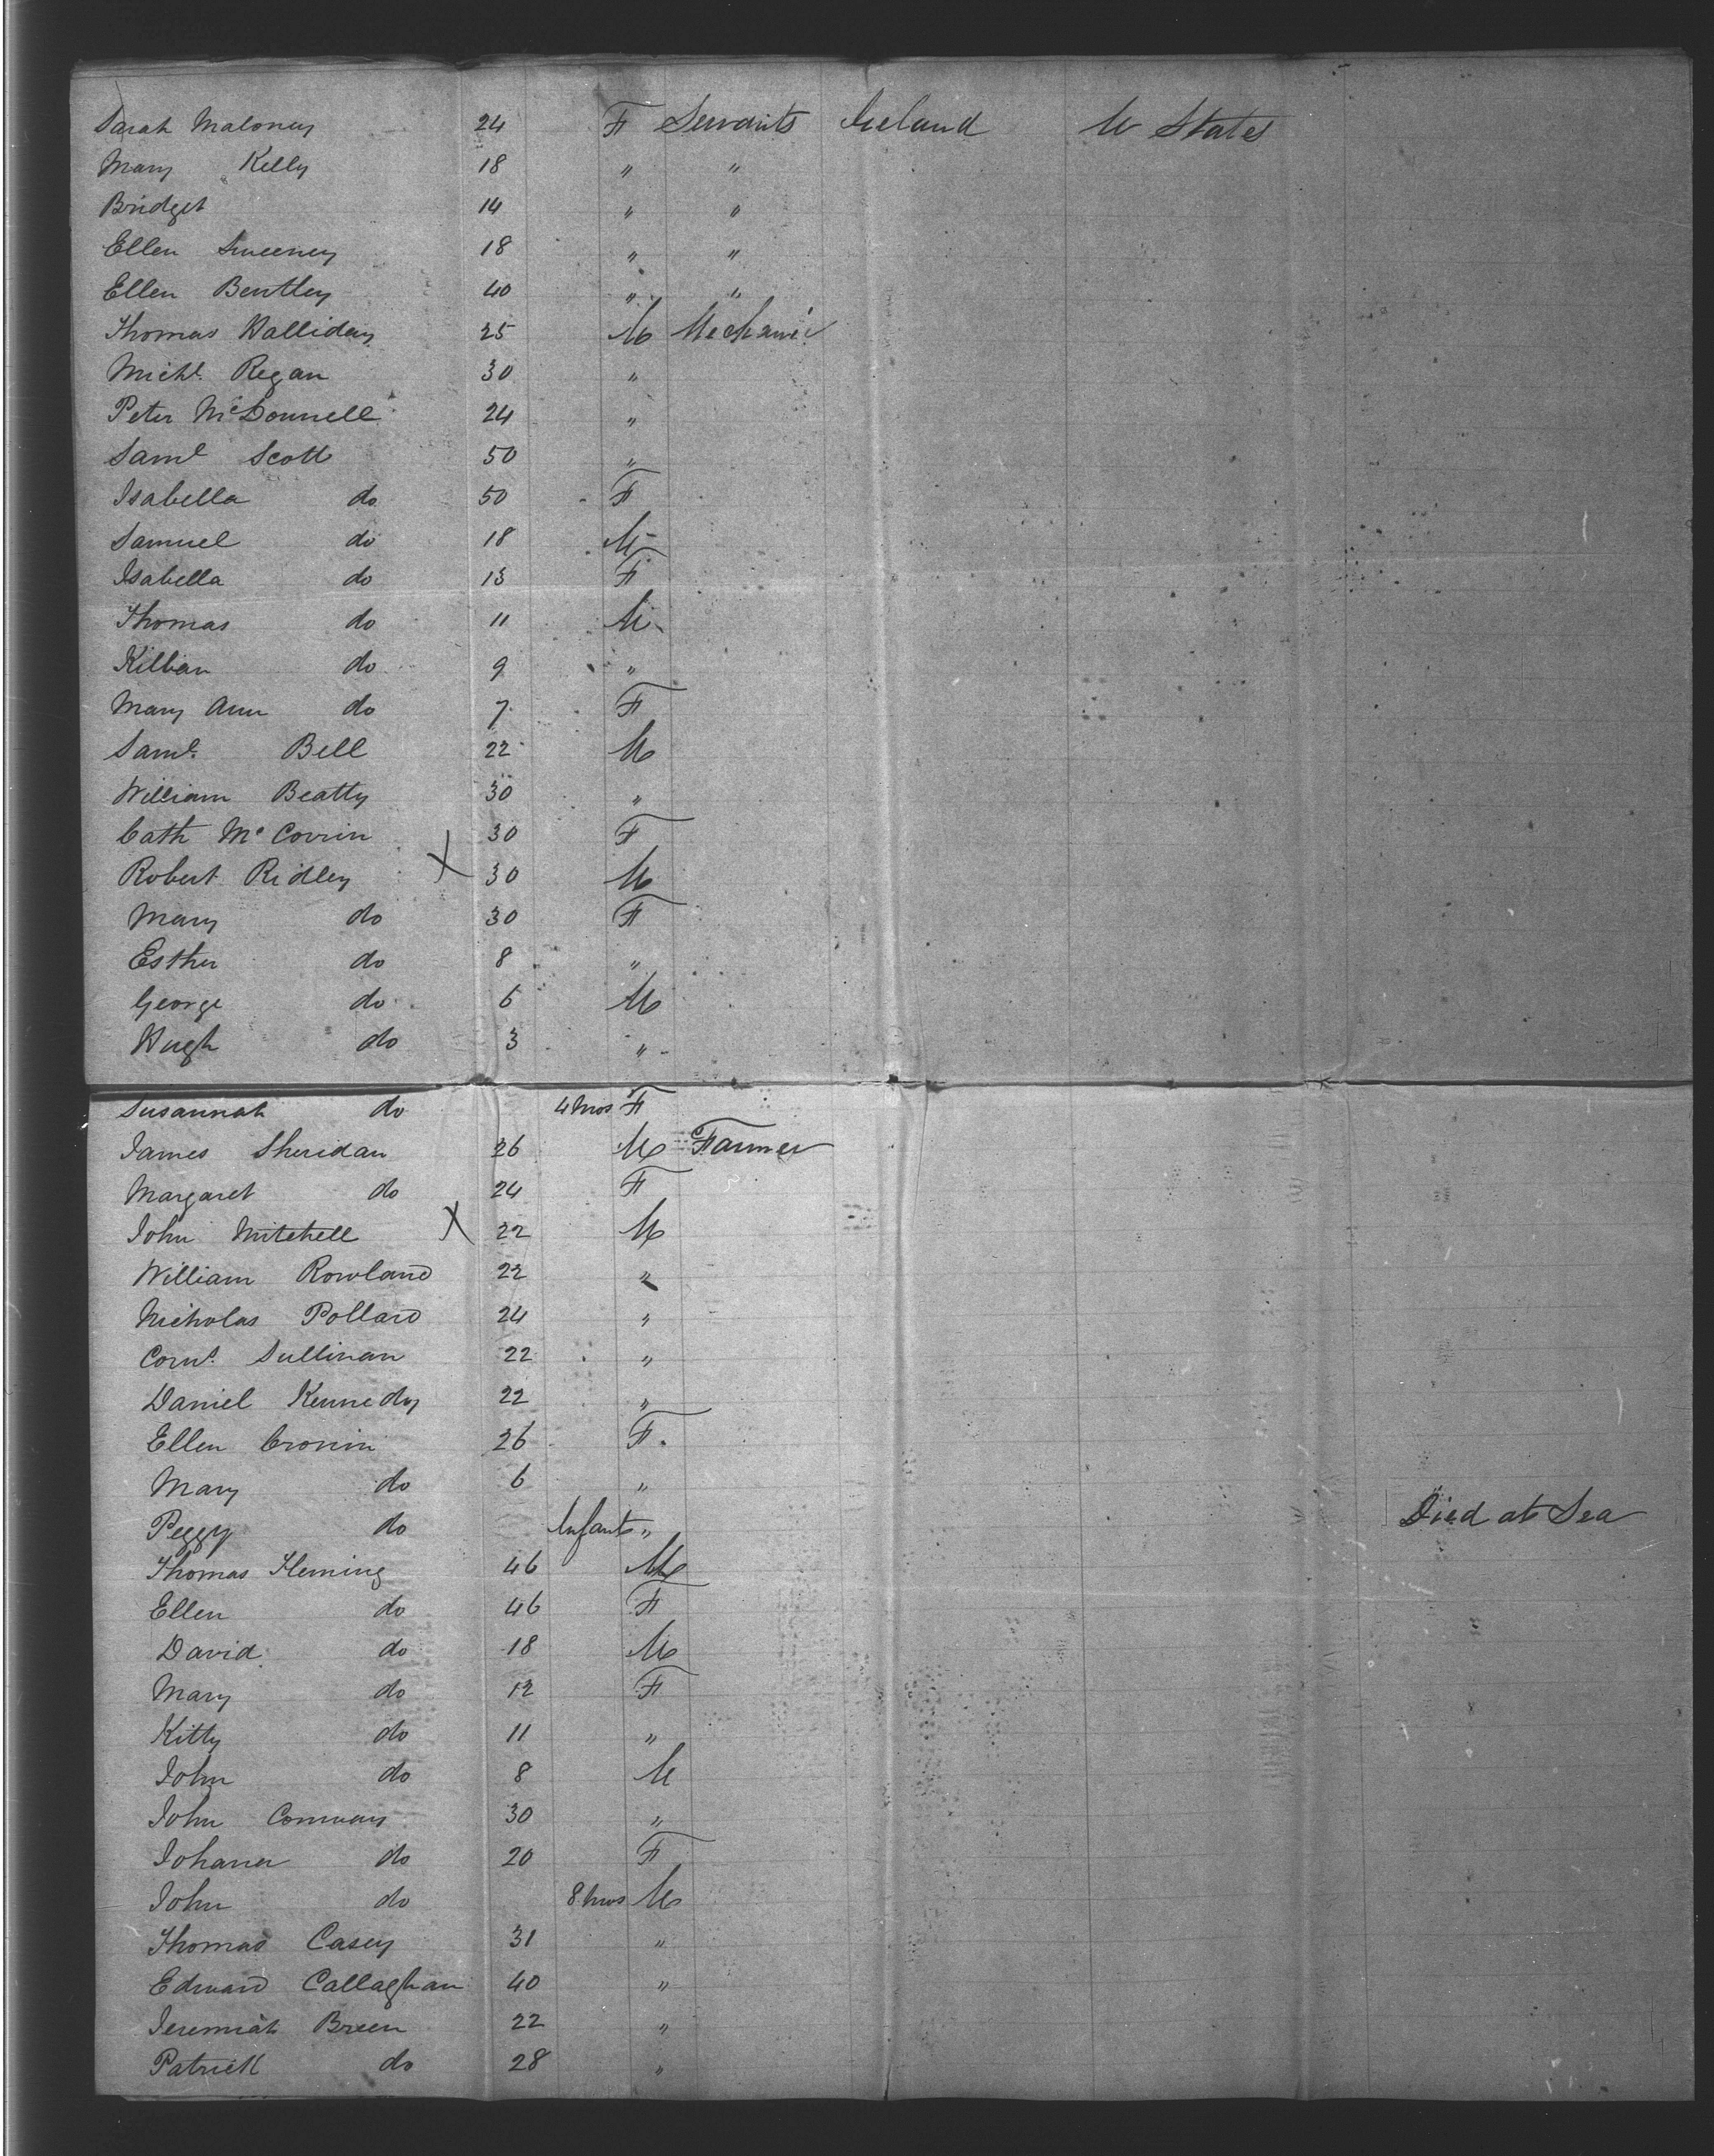 Sarah Maloney 24 F Servants Ireland U States
Mary Kelly 18 " "
Bridget 14 " "
Ellen Sweeney 18 " "
Ellen Bentley 40 " "
Thomas Halliday 25 M Mechanic
Michl. Regan 30 "
Peter McDonnell 24 "
Saml Scott 50 "
Isabella do 50 F
Samuel do 18 M
Isabella do 13 F
Thomas do 11 M
Killian do 9 "
Mary Ann do 7 F
Saml. Bell 22 M
William Beatty 30 "
Cath Mc Corrin 30 F
Robert Ridley X 30 M
Mary do 30 F
Esther do 8 "
George do 6 M
Hugh do 3 "
Susannah do 4 mos F
James Sheridan 26 M Farmer
Margaret do 24 F
John Mitchell X 22 M
William Rowland 22 "
Nicholas Pollard 24 "
Corns. Sullivan 22 "
Daniel Kennedy 22 "
Ellen Cronin 26 F
Mary do 6 "
Peggy do Infant " Died at Sea
Thomas Fleming 46 M
Ellen do 46 F
David do 18 M
Mary do 12 F
Kitty do 11 "
John do 8 M
John Conway 30 "
Johana do 20 F
John do 8 mos M
Thomas Casey 31 "
Edward Callaghan 40 "
Jeremiah Breen 22 "
Patrick do 28 "